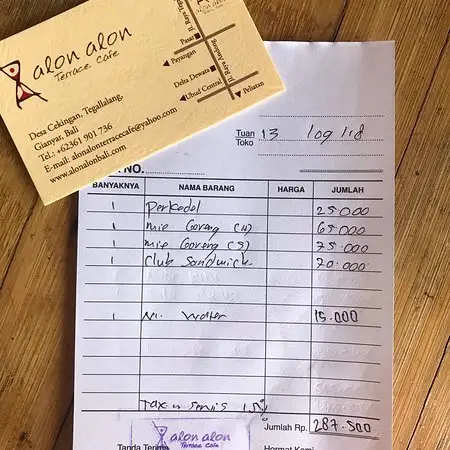 alon alon
Terrace Cafe
Jl. Raya
Pasar
Payangan
Jl. Raya Andong
Delta Dewata
Ubud Central
Peliatan
Desa Cekingan, Tegallalang,
Gianyar, Bali
Tel.: +62361 901 736
E-mail: alonalonterracecafe@yahoo.com
www.alonalonbali.com
Tuan 13 /09/18
Toko
NO.
BANYAKNYA NAMA BARANG HARGA JUMLAH
1 Perkedel 25.000
1 Mie Goreng 65.000
1 Mie Goreng (S) 75.000
1 Club Sandwich 70.000
1 Water 15.000
Tax 15%
Jumlah Rp. 287.500
alon alon
Terrace Cafe
Tanda Terima Hormat Kami